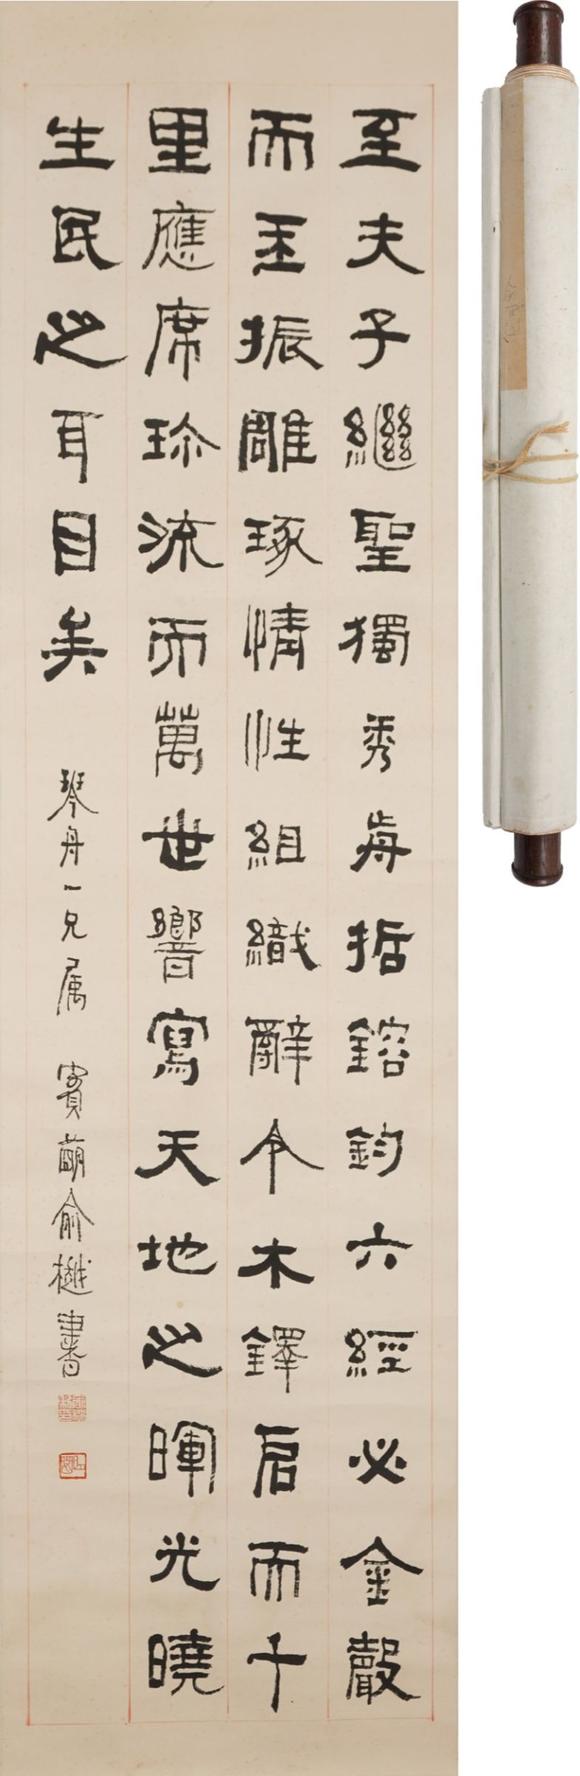 至夫子繼聖獨秀歬哲鎔鈞六經必金聲
而玉振雕琢情性組織辭令木鐸启而千
里應席珍流而萬世響寫天地之暉光曉
生民之耳目矣 琴舟一兄属 賓萌俞樾書